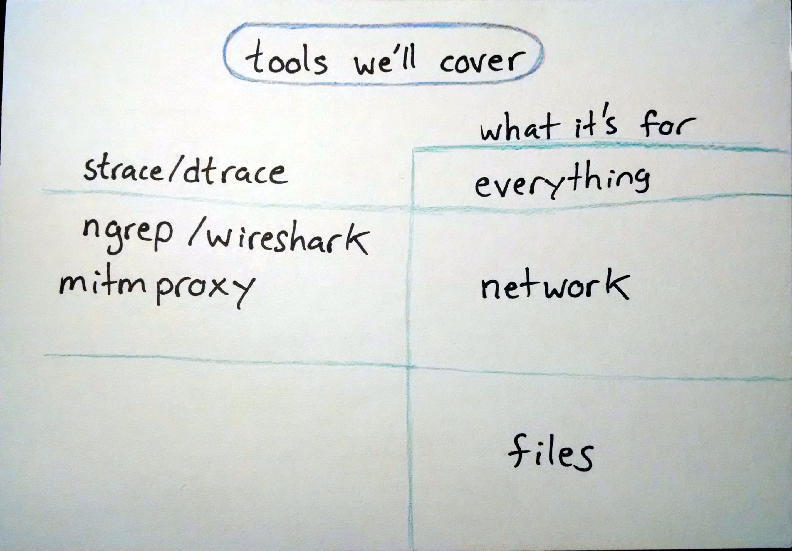 tools we'll cover
what it's for
strace/dtrace
everything
ngrep /wireshark
mitmproxy
network
files